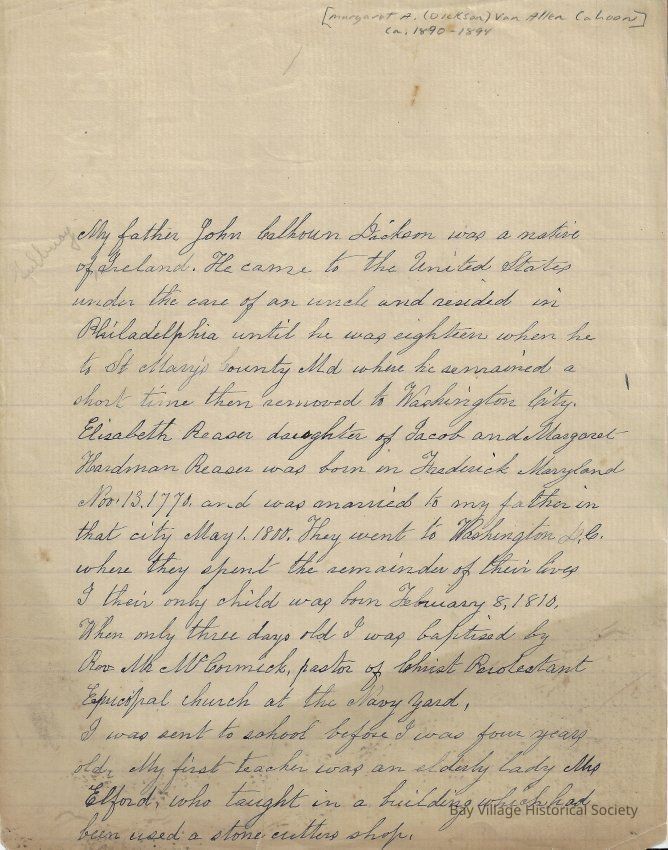 [Margaret A. (Dickson) Van Allen Cahoon]
ca. 1890-1894
My father John Calhoun Dickson was a native
of Ireland. He came to the United States
under the care of an uncle and resided in
Philadelphia until he was eighteen when he
to St Mary's County Md where he remained a
short time then removed to Washington City.
Elisabeth Reaser daughter of Jacob and Margaret
Hardman Reaser was born in Frederick Maryland
Nov. 13. 1770. and was married to my father in
that city May 1. 1800. They went to Washington D.C.
where they spent the remainder of their lives
I their only child was born February 8, 1810.
When only three days old I was baptised by
Rev Mr McCormick, pastor of Christ Protestant
Episcopal church at the Navy Yard,
I was sent to school before I was four years
older My first teacher was an elderly lady Mrs
Elford, who taught in a building which had
been used a stone cutters shop.
Bay Village Historical Society